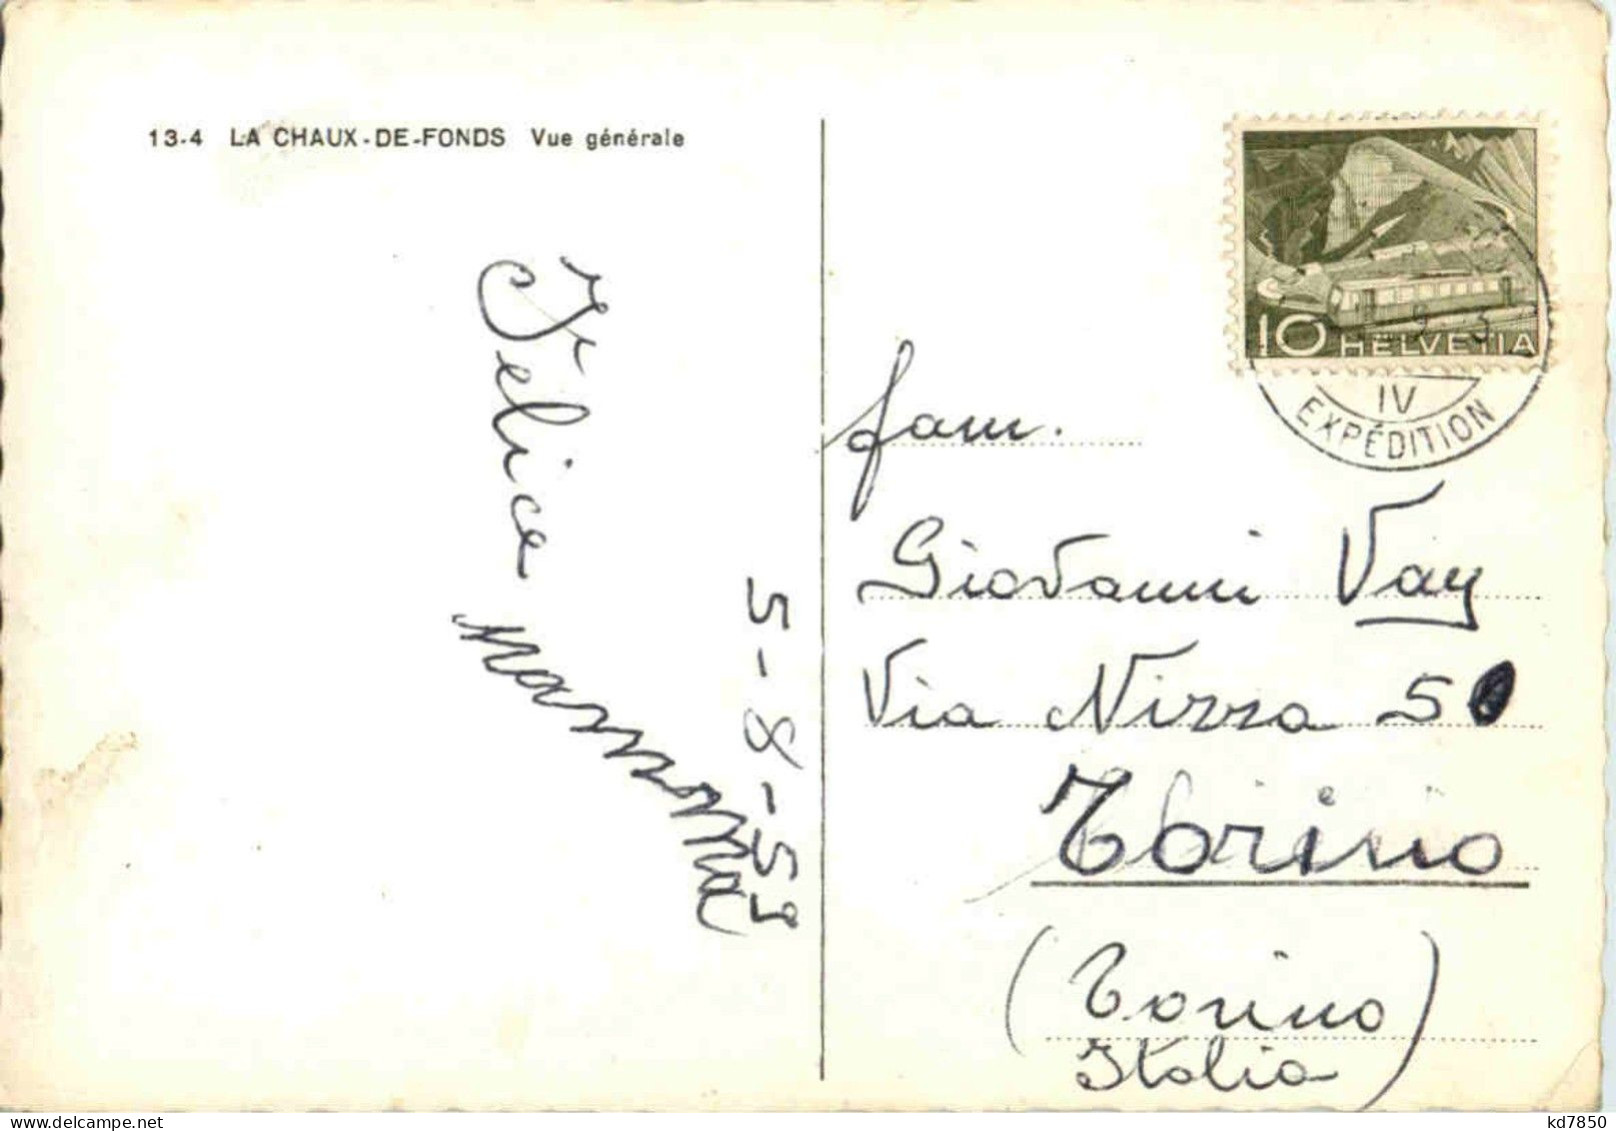 13-4 LA CHAUX-DE-FONDS Vue générale
10 HELVETIA
IV
EXPÉDITION
Felice
5-8-53
fam.
Giovanni Vay
Via Nizza 50
Torino
(Torino)
Italia
kd7850